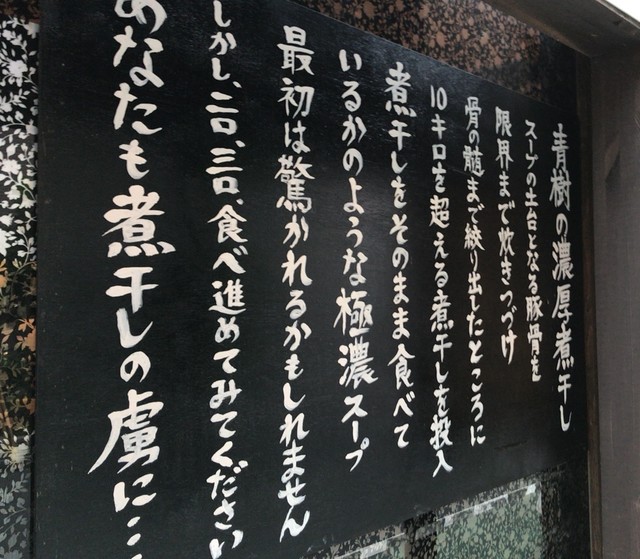 青樹の濃厚煮干し
スープの土台となる豚骨を
限界まで炊きつづけ
骨の髄まで絞り出したところに
10キロを超える煮干しを投入
煮干しをそのまま食べて
いるかのような極濃スープ
最初は驚かれるかもしれません
しかし、二口、三口、食べ進めてみてください
あなたも煮干しの虜に…